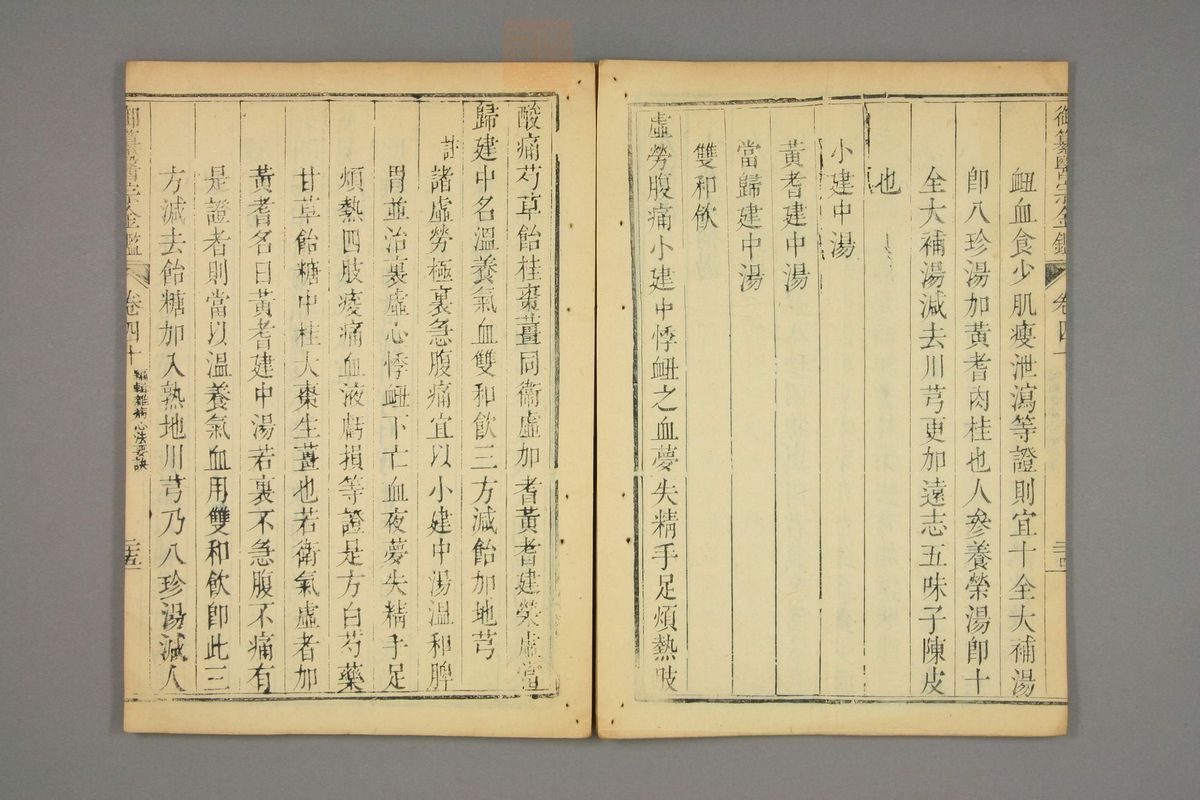 御纂醫宗金鑑 卷四十
衄血食少肌瘦泄瀉等證則宜十全大補湯
卽八珍湯加黃耆肉桂也人參養榮湯卽十
全大補湯減去川芎更加遠志五味子陳皮
也
小建中湯
黃耆建中湯
當歸建中湯
雙和飲
虛勞腹痛小建中悸衄之血夢失精手足煩熱肢
酸痛芍草飴桂棗薑同衛虛加耆黃耆建榮虛當
歸建中名溫養氣血雙和飲三方減飴加地芎
註 諸虛勞極裏急腹痛宜以小建中湯溫和脾
胃並治裏虛心悸衄下亡血夜夢失精手足
煩熱四肢痠痛血液虧損等證是方白芍藥
甘草飴糖中桂大棗生薑也若衛氣虛者加
黃耆名曰黃耆建中湯若裏不急腹不痛有
是證者則當以溫養氣血用雙和飲卽此三
方減去飴糖加入熟地川芎乃八珍湯減人
御纂醫宗金鑑 卷四十 編輯雜病心法要訣 二五